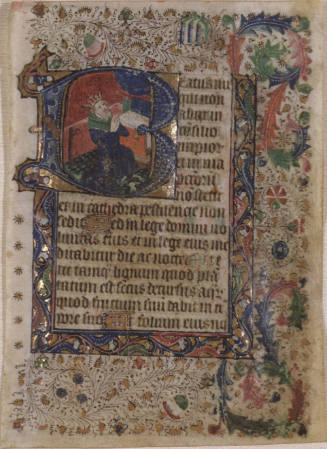 Beatus uir
qui non
abijt in
consilio
impior
et in uia
peccatorū
nō stetit
et in cathedra pestilencie non
sedit Sed in lege domini uo
luntas eius et in lege eius me
ditabitur die ac nocte Et
tamq̄ lignum quod plā
tatum est secus decursus aqr̄
quod fructum suū dabit in
pore suo Et folium eius nō